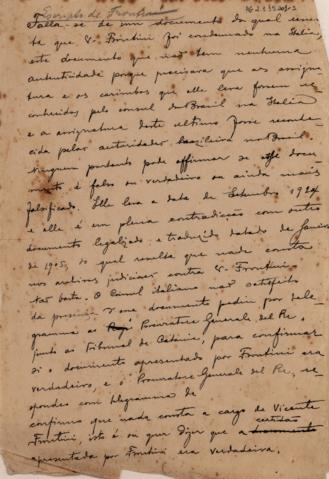 Exemplo de Frontini
162139S2052
Falla-se de um documento do qual consta
que V. Frontini foi condemnado na Italia,
este documento que não tem nenhuma
autenticidade porque precisava que as assigna-
tura e os carimbos que elle leva fossem re-
conhecidos pelo consul do Brasil na Italia
e a assignatura deste ultimo fosse reconhe-
cida pelas autoridades brasileira no Brasil.
Ninguem portanto pode affirmar se esse docu-
mento é falso ou verdadeiro ou ainda mais
falsificado. Elle leva a data de Setembro 1924
e elle é em plena contradicção com outro
documento legalizado e traduzido datado de Janeiro
de 1905, do qual resulta que nada consta
nos archivos judiciaes contra V. Frontini
tal data. O Consul italiano não satisfeito
da precisão de esse documento pediu por tele-
gramma ao Procuratore Generale del Re,
junto ao Tribunal de Catania, para confirmar
si o documento apresentado por Frontini era
verdadeiro, e o Procuratore Generale del Re, re-
spondeu com telegramma de
confirmo que nada consta a cargo de Vicente
Frontini, isto é ou quer dizer que a certidão
apresentada por Frontini era verdadeira.